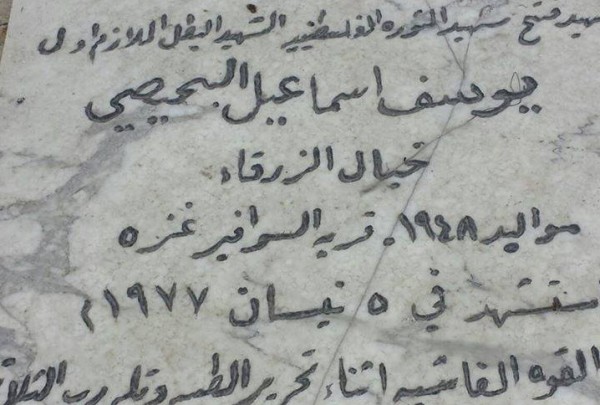 شهيد فتح شهيد الثوره الفلسطينيه الشهيد البطل الملازم اول
يوسف اسماعيل البحيصي
خيال الزرقاء
مواليد ١٩٤٨. قريه السوافير غزه
استشهد في ٥ نيسان ١٩٧٧م
القوه الفاشيه اثناء تحرير الطيبه وتلة رب الثلاثين